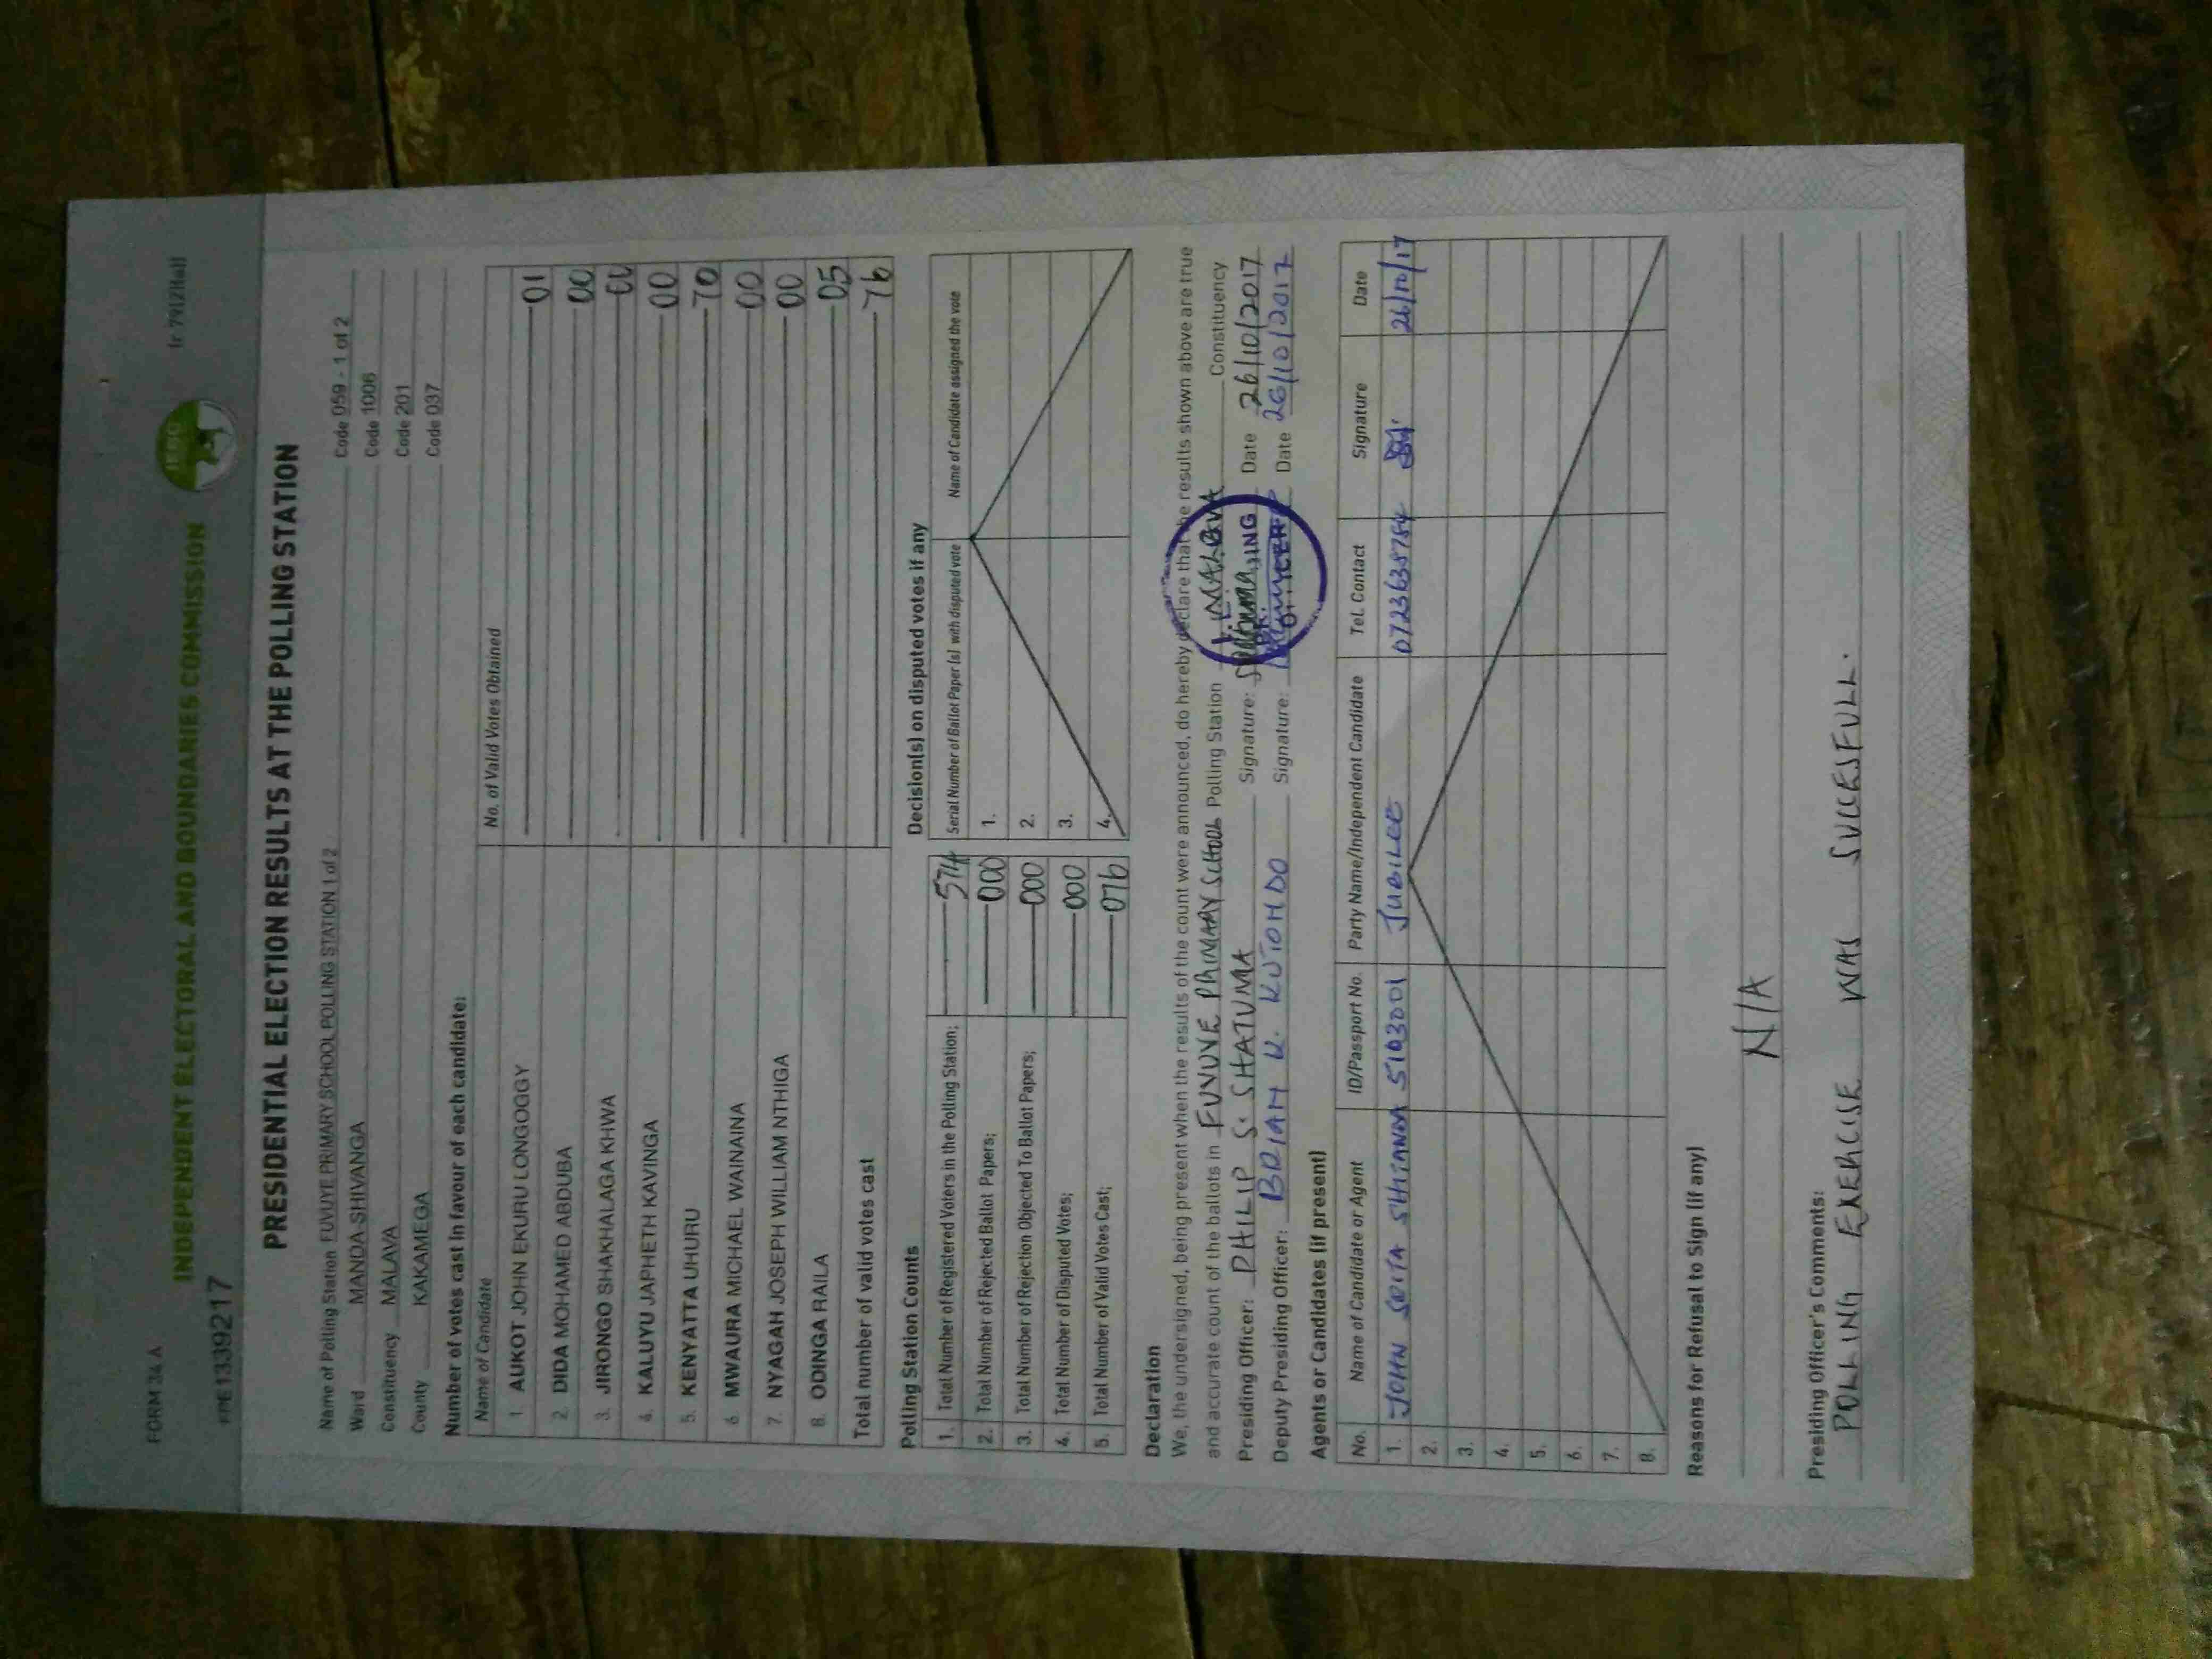 FORM 34 A
(r 79(2)(a))
INDEPENDENT ELECTORAL AND BOUNDARIES COMMISSION
IEBC
PRESIDENTIAL ELECTION RESULTS AT THE POLLING STATION
Name of Polling Station FUVUYE PRIMARY SCHOOL POLLING STATION 1 of 2 Code 059 - 1 of 2
Ward MANDA-SHIVANGA Code 1006
Constituency MALAVA Code 201
County KAKAMEGA Code 037
Number of votes cast in favour of each candidate:
Name of Candidate No. of Valid Votes Obtained
1. AUKOT JOHN EKURU LONGOGGY 01
2. DIDA MOHAMED ABDUBA 00
3. JIRONGO SHAKHALAGA KHWA 00
4. KALUYU JAPHETH KAVINGA 00
5. KENYATTA UHURU 70
6. MWAURA MICHAEL WAINAINA 00
7. NYAGAH JOSEPH WILLIAM NTHIGA 00
8. ODINGA RAILA 05
Total number of valid votes cast 76
Polling Station Counts
1. Total Number of Registered Voters in the Polling Station; 574
2. Total Number of Rejected Ballot Papers; 000
3. Total Number of Rejection Objected To Ballot Papers; 000
4. Total Number of Disputed Votes; 000
5. Total Number of Valid Votes Cast; 076
Decision(s) on disputed votes if any
Serial Number of Ballot Paper (s) with disputed vote Name of Candidate assigned the vote
1.
2.
3.
4.
Declaration
We, the undersigned, being present when the results of the count were announced, do hereby declare that the results shown above are true
and accurate count of the ballots in FUVUYE PRIMARY SCHOOL Polling Station MALAVA Constituency
Presiding Officer: PHILIP S. SHATUMA Signature: Date 26/10/2017
Deputy Presiding Officer: BRIAN K. Signature: Date 26/10/2017
Agents or Candidates (if present)
No. Name of Candidate or Agent ID/Passport No. Party Name/Independent Candidate Tel. Contact Signature Date
1. JOHN 5103001 JUBILEE 26/10/17
2.
3.
4.
5.
6.
7.
8.
Reasons for Refusal to Sign (if any)
N/A
Presiding Officer's Comments:
POLLING EXERCISE WAS SUCCESFULL.